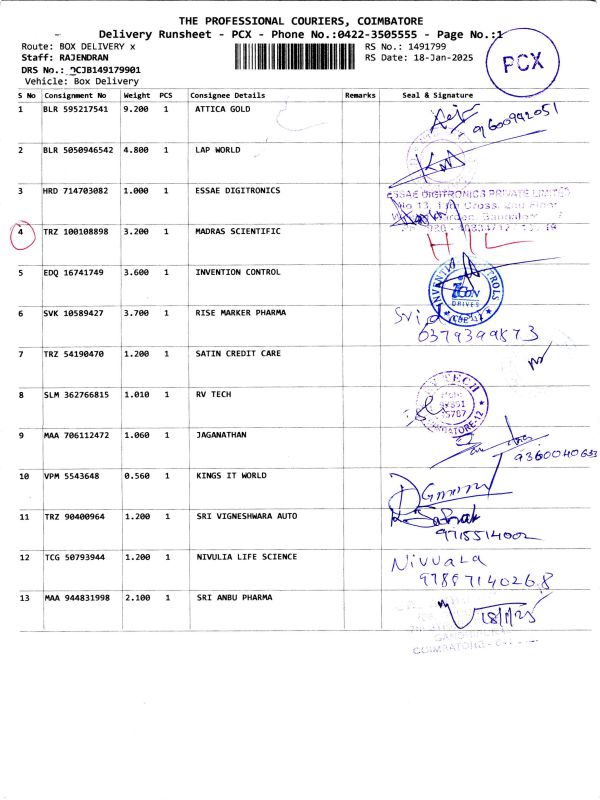 THE PROFESSIONAL COURIERS, COIMBATORE
Delivery Runsheet - PCX - Phone No.:0422-3505555 - Page No.:1
Route: BOX DELIVERY x
RS No.: 1491799
Staff: RAJENDRAN
RS Date: 18-Jan-2025
PCX
DRS No.: DCJB149179901
Vehicle: Box Delivery
S No Consignment No Weight PCS Consignee Details Remarks Seal & Signature
1 BLR 595217541 9.200 1 ATTICA GOLD
9600992051
2 BLR 5050946542 4.800 1 LAP WORLD
3 HRD 714703082 1.000 1 ESSAE DIGITRONICS
ESSAE DIGITRONICS PRIVATE LIMITED
No 13, 1 Cross, 2nd Floor
4 TRZ 100108898 3.200 1 MADRAS SCIENTIFIC
5 EDQ 16741749 3.600 1 INVENTION CONTROL
DRIVES
6 SVK 10589427 3.700 1 RISE MARKER PHARMA
0379399873
7 TRZ 54190470 1.200 1 SATIN CREDIT CARE
8 SLM 362766815 1.010 1 RV TECH
9 MAA 706112472 1.060 1 JAGANATHAN
9360040633
10 VPM 5543648 0.560 1 KINGS IT WORLD
11 TRZ 90400964 1.200 1 SRI VIGNESHWARA AUTO
9715514002
12 TCG 50793944 1.200 1 NIVULIA LIFE SCIENCE
Nivuala
9786714026.8
13 MAA 944831998 2.100 1 SRI ANBU PHARMA
18/1/25
COIMBATORE